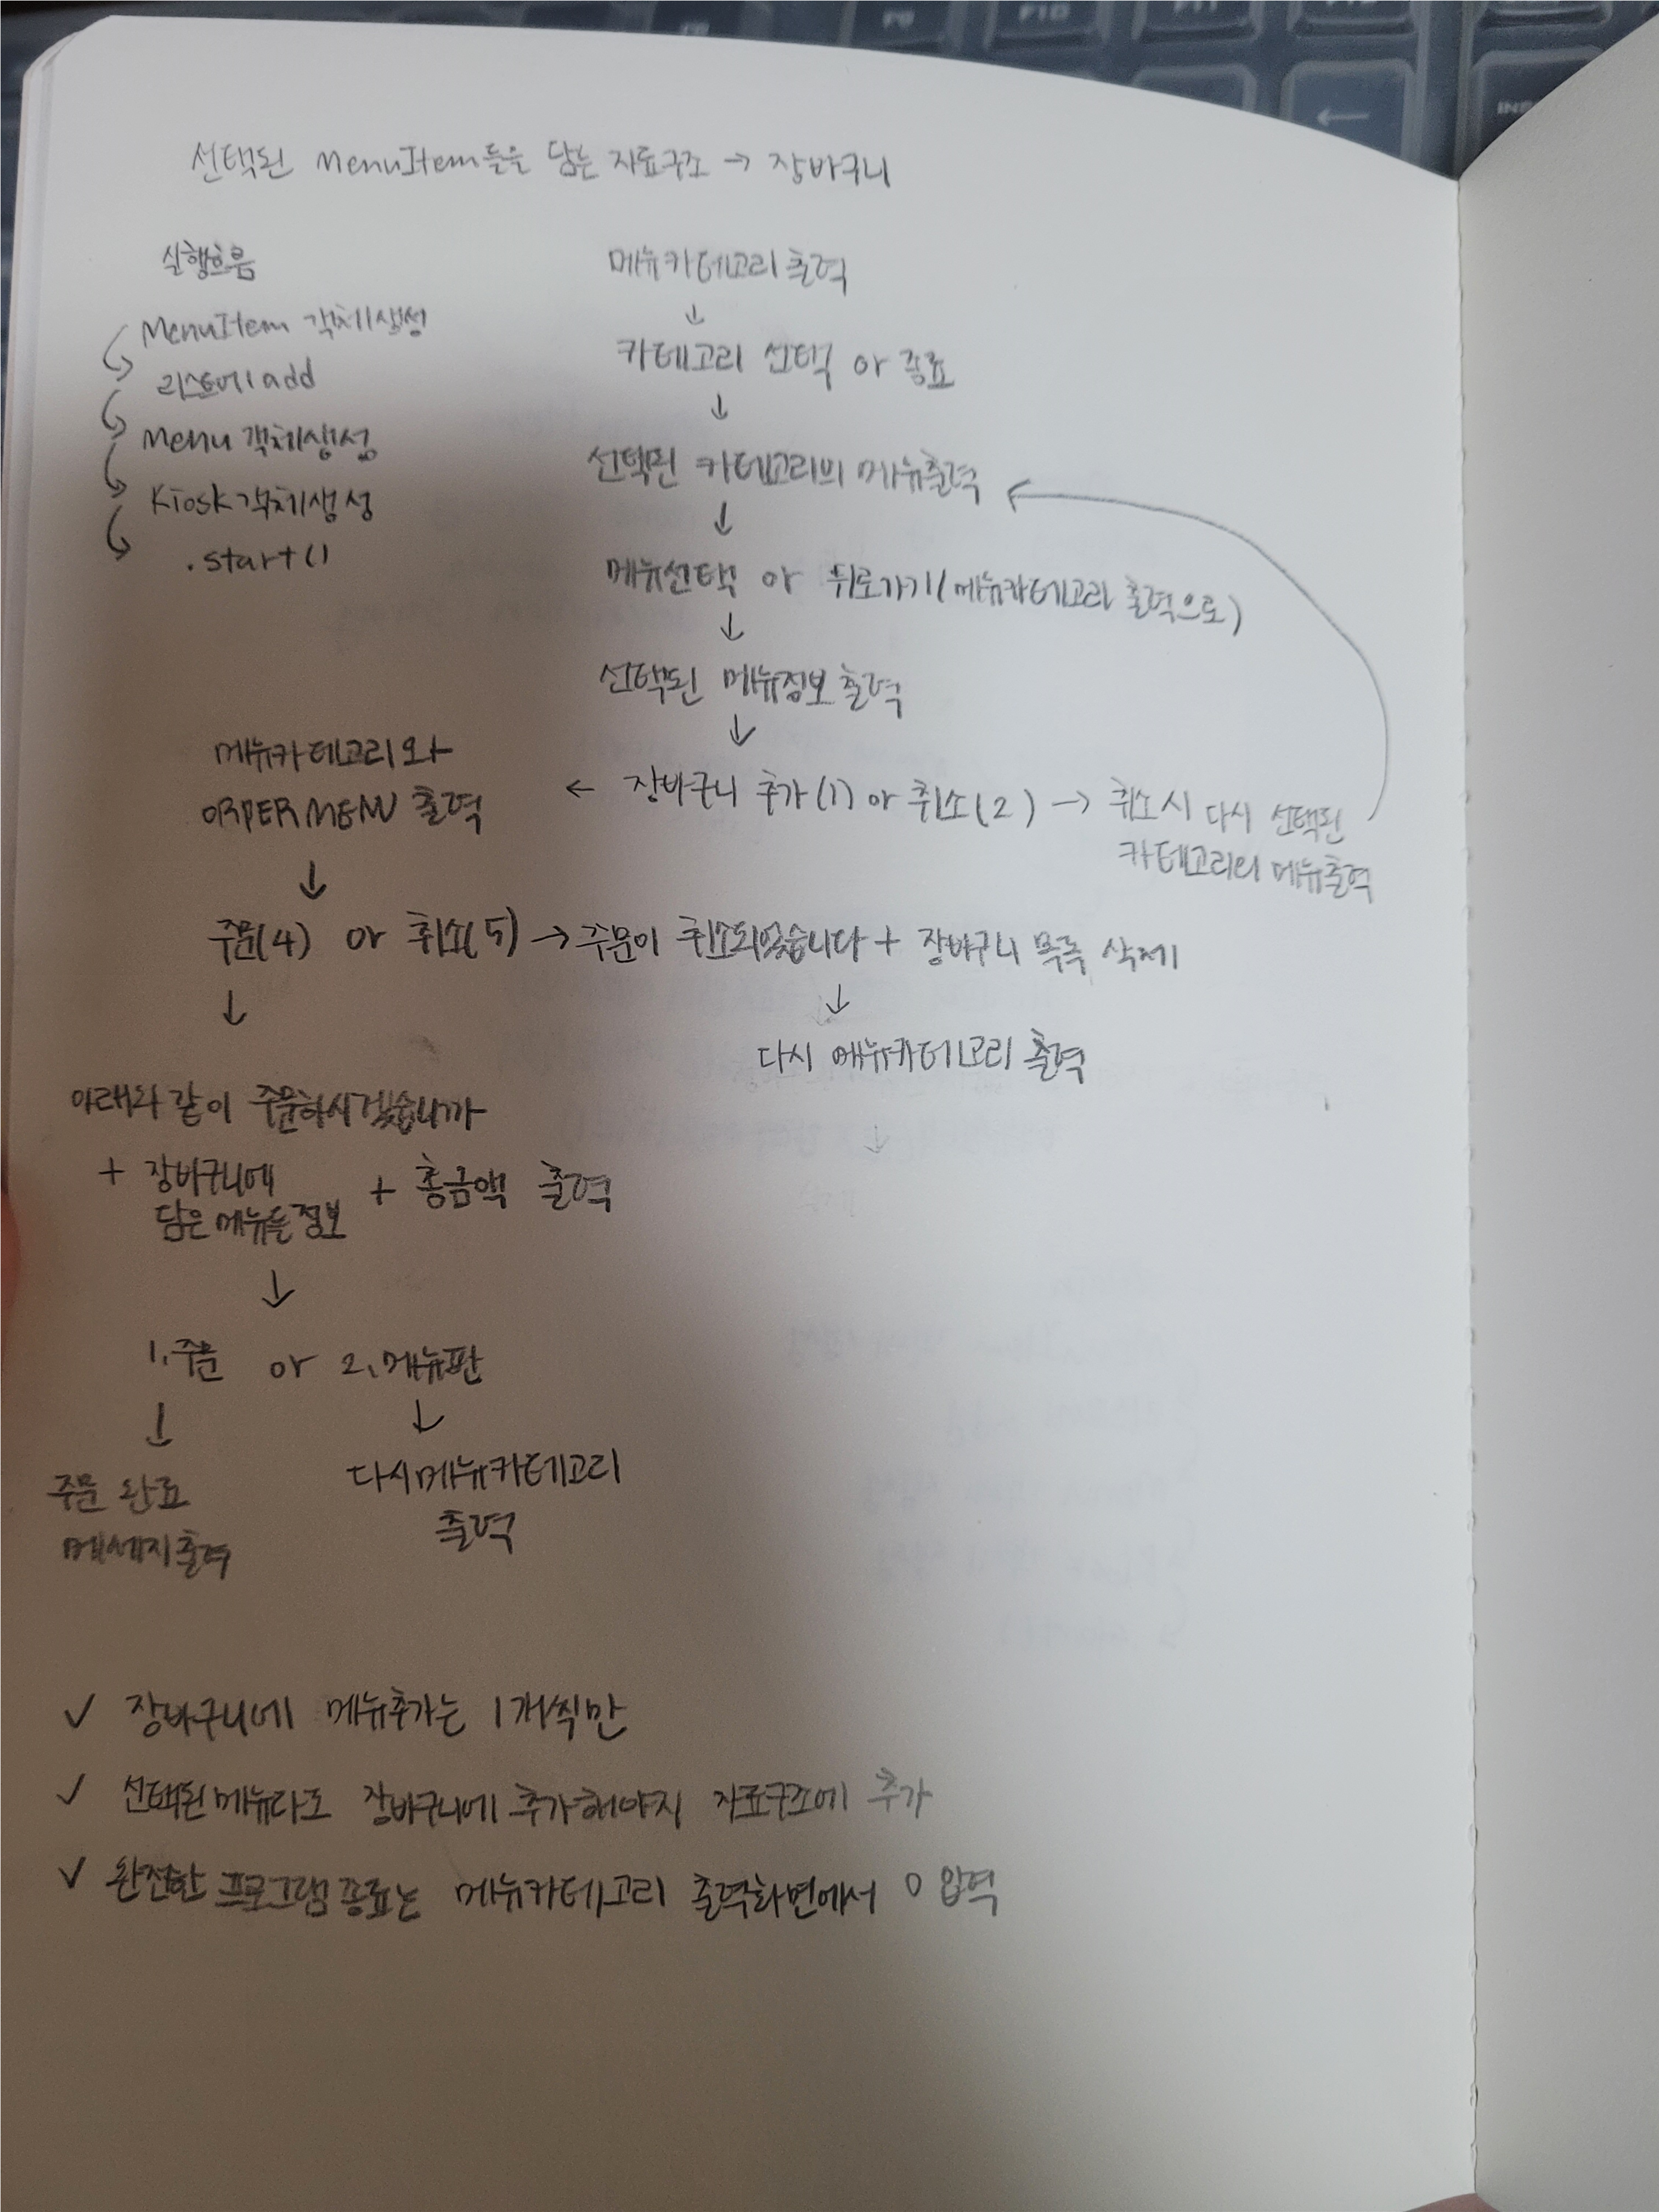 선택된 MenuItem들을 담는 자료구조 → 장바구니
실행흐름
MenuItem 객체생성
리스트에 add
Menu 객체생성
Kiosk 객체생성
.start()
메뉴카테고리 출력
↓
카테고리 선택 or 종료
↓
선택된 카테고리의 메뉴출력
↓
메뉴선택 or 뒤로가기(메뉴카테고리 출력으로)
↓
선택된 메뉴정보 출력
↓
← 장바구니 추가(1) or 취소(2) → 취소시 다시 선택된
카테고리의 메뉴출력
메뉴카테고리와
ORPER MENU 출력
↓
주문(4) or 취소(5) → 주문이 취소되었습니다 + 장바구니 목록 삭제
↓
다시 메뉴카테고리 출력
↓
아래와 같이 주문하시겠습니까
+ 장바구니에
담은 메뉴들 정보 + 총금액 출력
↓
1. 주문 or 2. 메뉴판
↓ ↓
주문 완료
메세지 출력
다시 메뉴카테고리
출력
✓ 장바구니에 메뉴추가는 1개씩만
✓ 선택된 메뉴라도 장바구니에 추가해야지 자료구조에 추가
✓ 완전한 프로그램 종료는 메뉴카테고리 출력화면에서 0 입력
F9
F10
F11